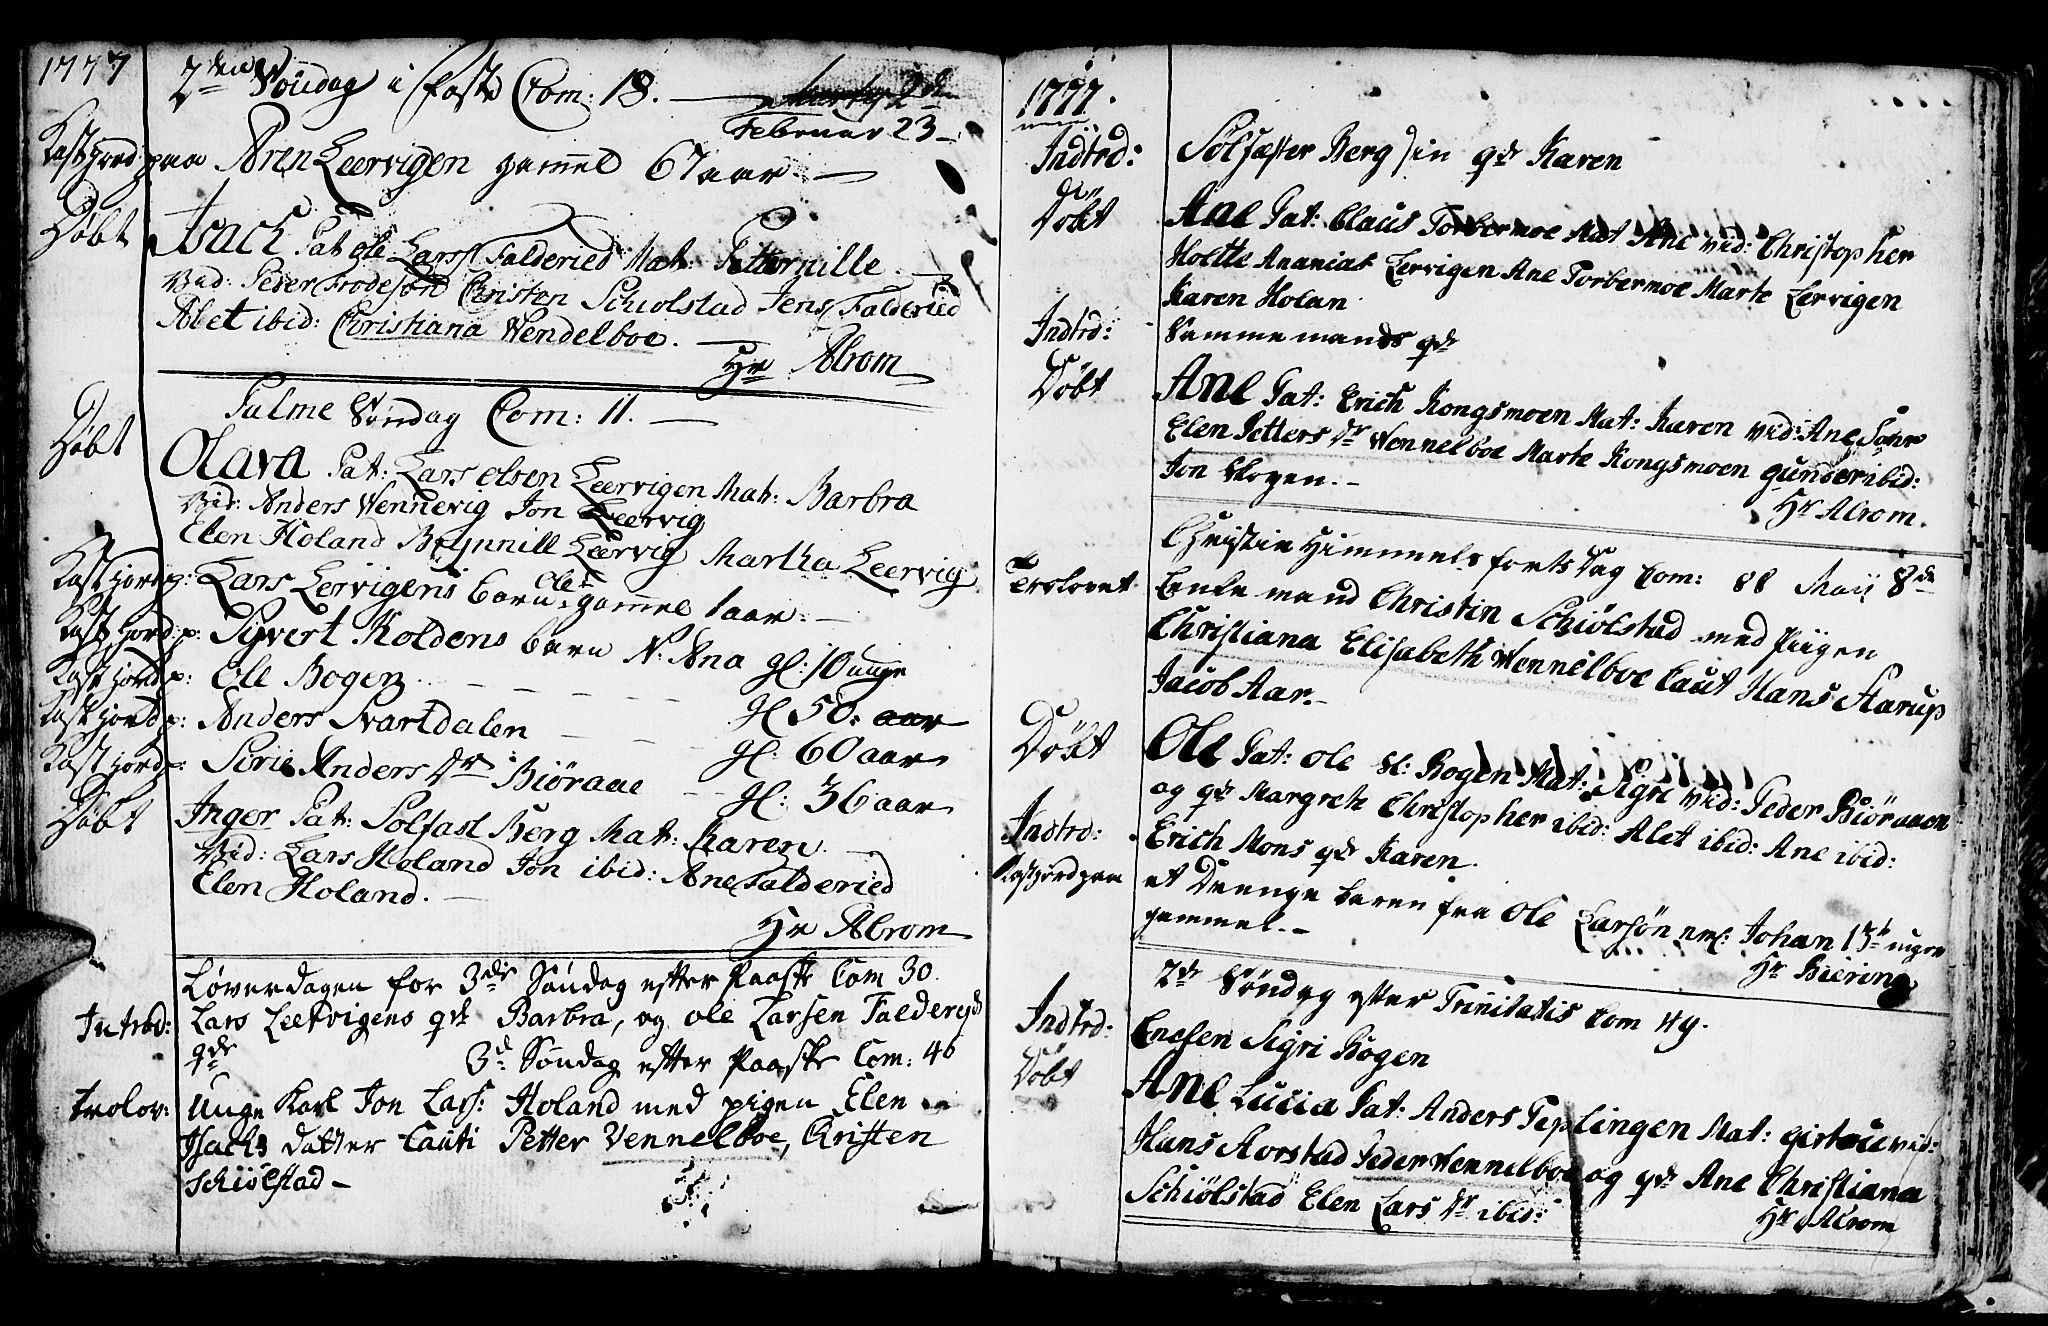 1777
2den Søndag i faste Com: 18. —
Februar 23 —
Kast Jord paa Aren Leervigen gamel 67 aar. —
Døbt Isach Pat Ole Larss Falderied Mat: Petternille. —
Vid: Peder Frodesøn Christen Schiolstad Jens Falderied
Alet ibid: Christiana Wendelboe. —
Hr Abrom
Palme Søndag Com: 11. —
Døbt Olava Pat: Lars olsen Leervigen Mat: Barbra
Vid: Anders Wennevig Jon Leervig
Elen Holand Leervig Martha Leervig
Kast Jord p: Lars Lervigens barn Ole gammel 1 aar. —
Kast Jord p: Sivert Holdens barn N: Ana gl: 10 uuge
Kast Jord p: Ole Bogen — — — — gl 50: aar
Kast Jord p: Anders Svartdalen — — — gl: 60 aar
Kast Jord p: Sirie Anders Dr Biøraae — — gl: 36 aar
Døbt Inger Pat: Solfast Berg Mat: Karen
Vid: Lars Holand Jon ibid: Ane Falderied
Elen Holand. —
Hr Abrom
Løverdagen for 3die Søndag efter Paaske Com 30.
Introd: Lars Leervigens qde Barbra, og ole Larsen Falderyds
qde 3d Søndag efter Paaske Com: 46
Trolov: Unge Karl Jon Lars: Holand med pigen Elen
Isachs datter Cauti Petter Vennelboe, Christen
Schiølstad —
1777.
Indtrd: Solfæster Berg sin qde Karen
Døbt Ane Pat: Claus Torbermoe Mat Ane vid: Christopher
Holtte Ananias Lervigen Ane Torbermoe Marte Lervigen
Karen Holan
Indtrd: Samme mands qde
Døbt Ane Pat: Erich Kongsmoen Mat: Karen vid: Ane
Elen Petters Dr Wennelboe Marte Kongsmoen gunder ibid:
Jon Skogen. —
Hr Abrom.
Christie Himmels farts Dag Com: 88 Maij 8de
Troloved Enke mand Christin Schiølstad med Piigen
Christiana Elisabeth Wennelboe Caut Hans Aarup
Jacob Aar. —
Døbt Ole Pat: Ole Sl: Bogen Mat: Sigri vid: Peder Biøraaen
og qde Margrete Christopher ibid: Alet ibid: Ane ibid:
Indtrd: Erich Mons qde Karen
Kast Jord paa et Drenge baren fra Ole Larsøn nml: Johan 13 uger
gammel. —
Hr Biering
2de Søndag efter Trinitatis Com 49.
Indtrd: Enchen Sigri Bogen
Døbt Ane Lucia Pat: Anders Teplingen Mat: girtru vid:
Hans Aorstad Peder Wennelboe og qde Ane Christiana
Schiølstad Elen Lars Dr ibid:
Hr Abrom